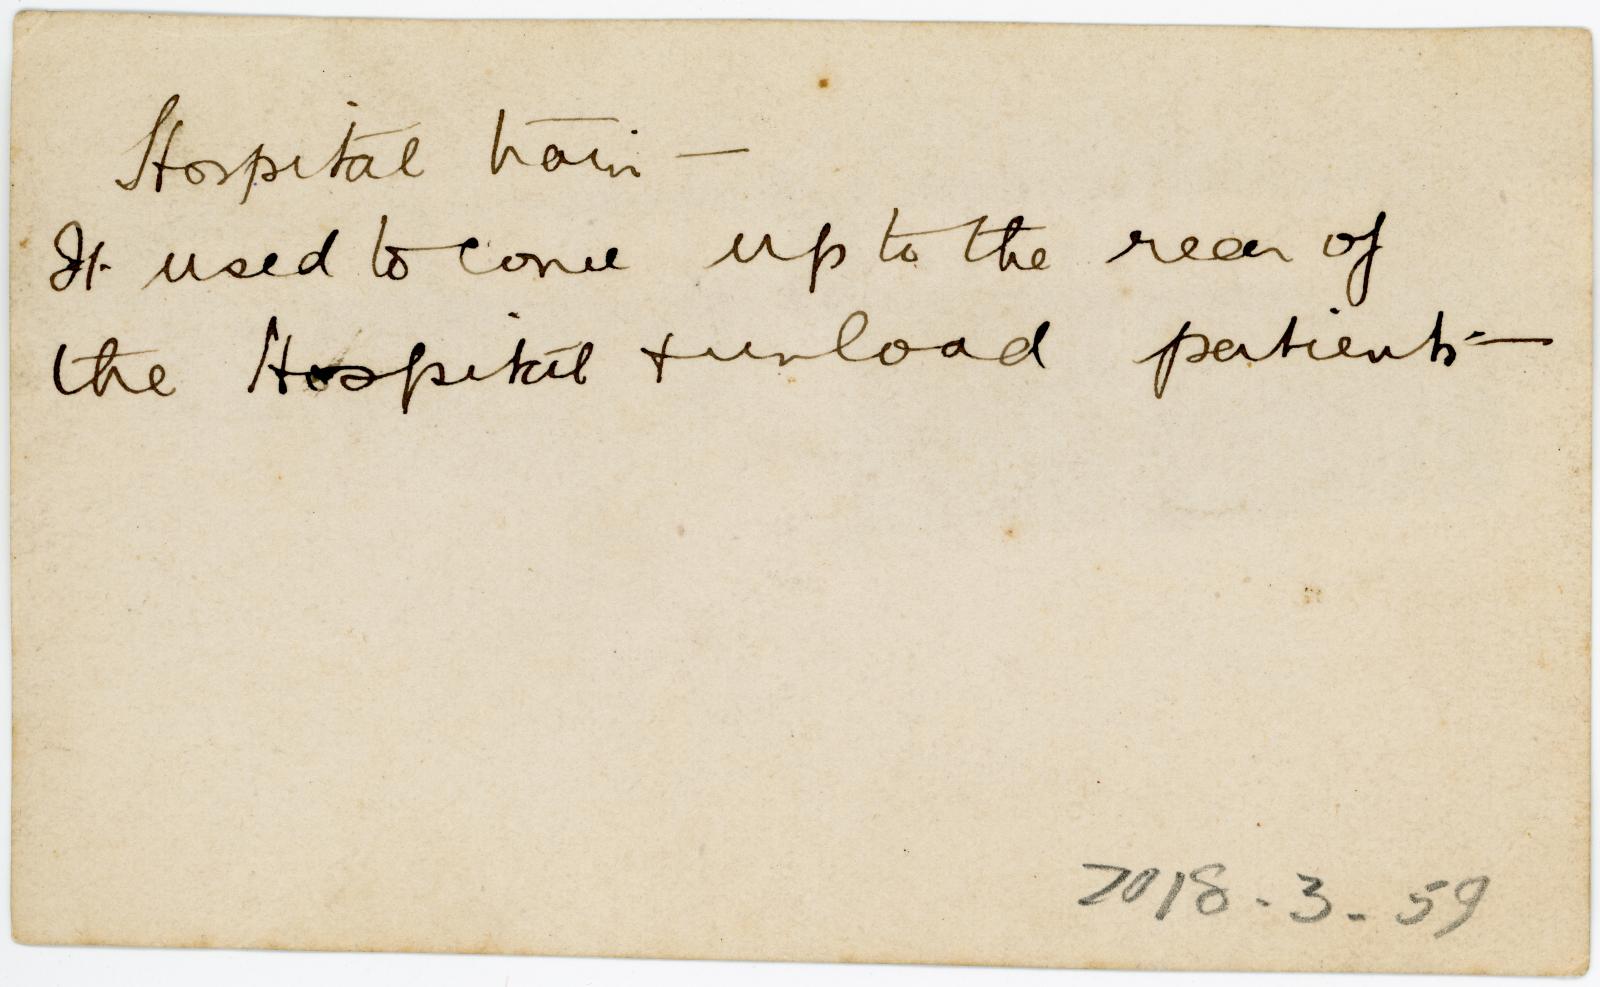 Hospital train —
It used to come up to the rear of
the Hospital + unload patients —
2018-3-59